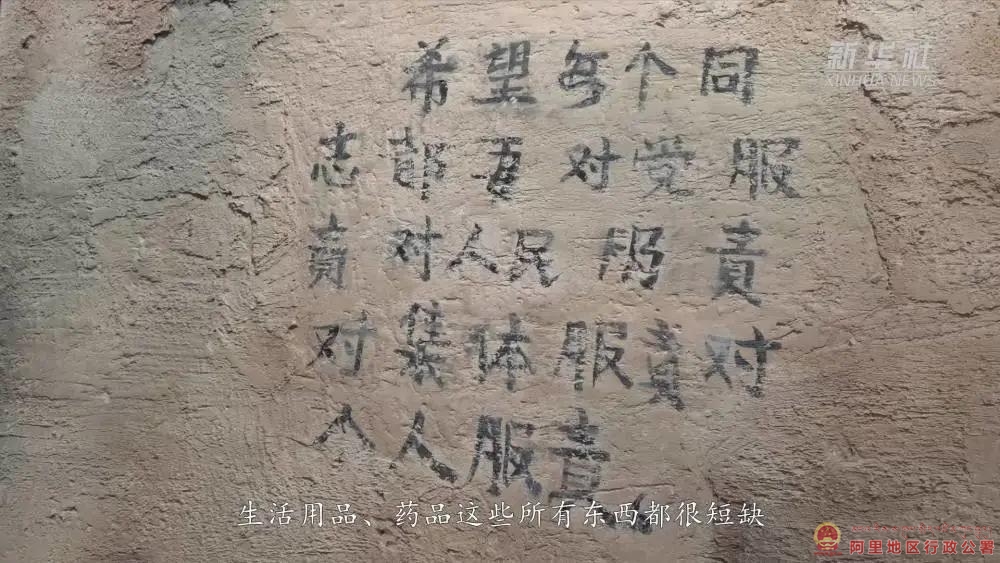 新华社
XINHUA NEWS
希望每个同
志都要对党服
责对人民服责
对集体服责对
个人服责。
生活用品、药品这些所有东西都很短缺
阿里地区行政公署